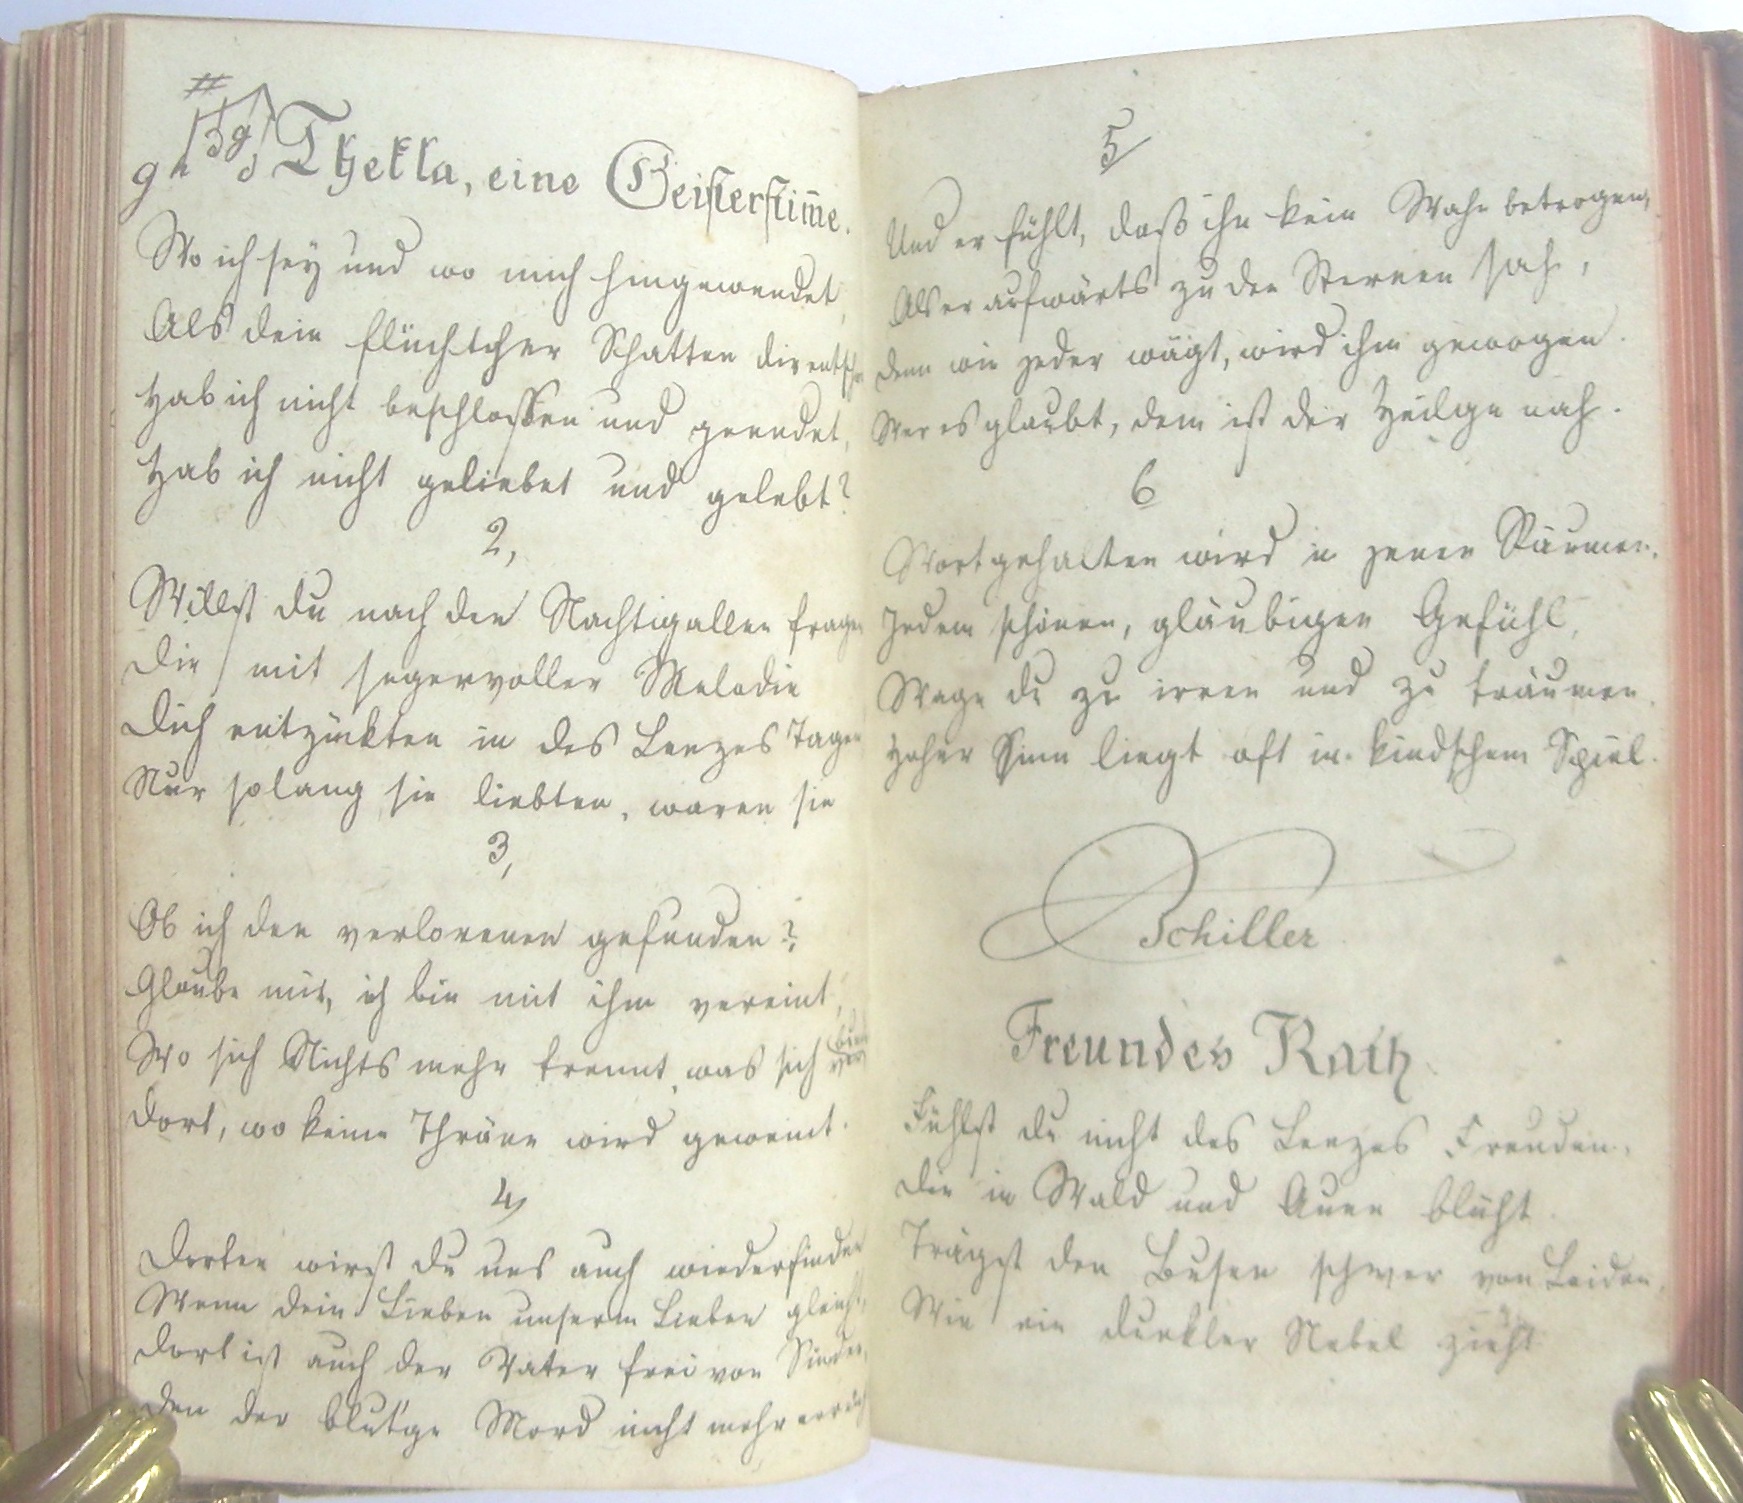 Thekla, eine Geisterstim̅e.
Wo ich sey und wo mich hingewendet,
Als dein flüchtcher Schatten dir entsch
Hab ich nicht beschloßen und geendet,
Hab ich nicht geliebet und gelebt?
2,
Willst du nach den Nachtigallen fragen
Die mit seeenvoller Melodie
Dich entzückten in des Lenzes Tagen
Nur solang sie liebten, waren sie
3,
Ob ich den verlorenen gefunden?
Glaube mir, ich bin mit ihm vereint,
Wo sich Nichts mehr trennt, was sich verbun
Dort, wo keine Thräne wird geweint.
4,
Dorten wirst du uns auch wiederfinden
Wenn dein Lieben unserm Lieben gleicht,
Dort ist auch der Vater frei von Sünden,
Den der blut'ge Mord nicht mehr erreich
5
Und er fühlt, daß ihn kein Wahn betrogen,
Als er aufwärts zu den Sternen sah,
Denn wie jeder wägt, wird ihm gewogen.
Wer es glaubt, dem ist der Heilge nah.
6
Wort gehalten wird in jenen Räumen,
Jedem schönen, gläubigen Gefühl,
Wage du zu irren und zu träumen.
Hoher Sinn liegt oft in kindschem Spiel.
Schiller
Freundes Rath
Fühlst du nicht des Lenzes Freuden,
Die in Wald und Auen blüht.
Trägst den Busen schwer von Leiden,
Wie ein dunkler Nebel zieht